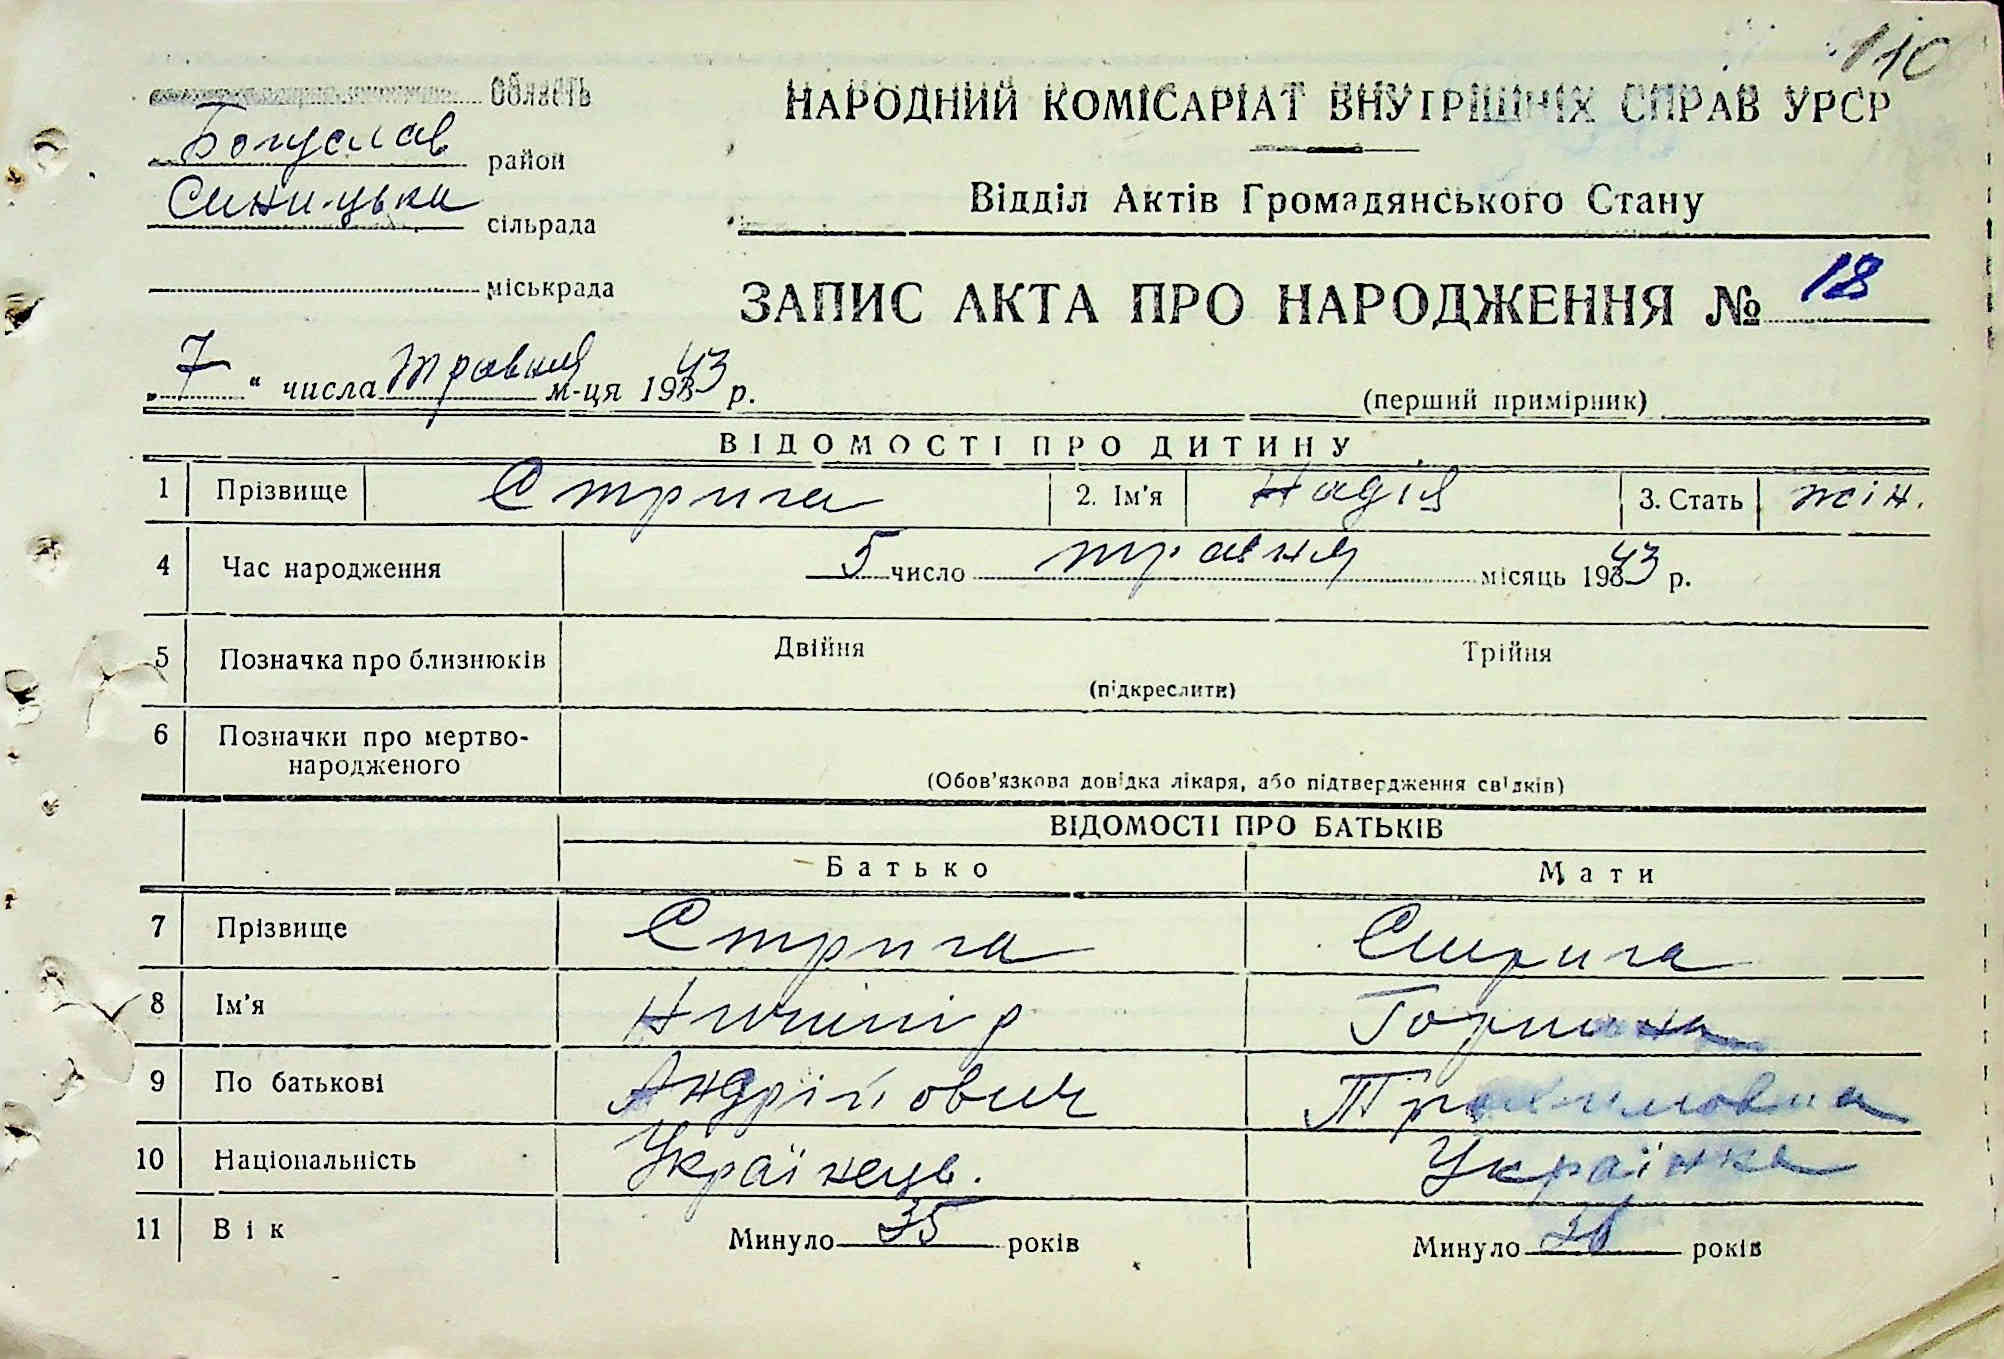 110
Область
Богуслав район
Синицька сільрада
міськрада
НАРОДНИЙ КОМІСАРІАТ ВНУТРІШНІХ СПРАВ УРСР
Відділ Актів Громадянського Стану
ЗАПИС АКТА ПРО НАРОДЖЕННЯ № 18
„7“ числа травня м-ця 1943 р.
(перший примірник)
ВІДОМОСТІ ПРО ДИТИНУ
1 Прізвище Стрига 2. Ім'я Надія 3. Стать жін.
4 Час народження 5 число травня місяць 1943 р.
5 Позначка про близнюків Двійня Трійня
(підкреслити)
6 Позначки про мертво-
народженого
(Обов'язкова довідка лікаря, або підтвердження свідків)
ВІДОМОСТІ ПРО БАТЬКІВ
Батько Мати
7 Прізвище Стрига Стрига
8 Ім'я Ничипір Горпина
9 По батькові Андрійович
10 Національність Українець. Українка
11 Вік Минуло 35 років Минуло років